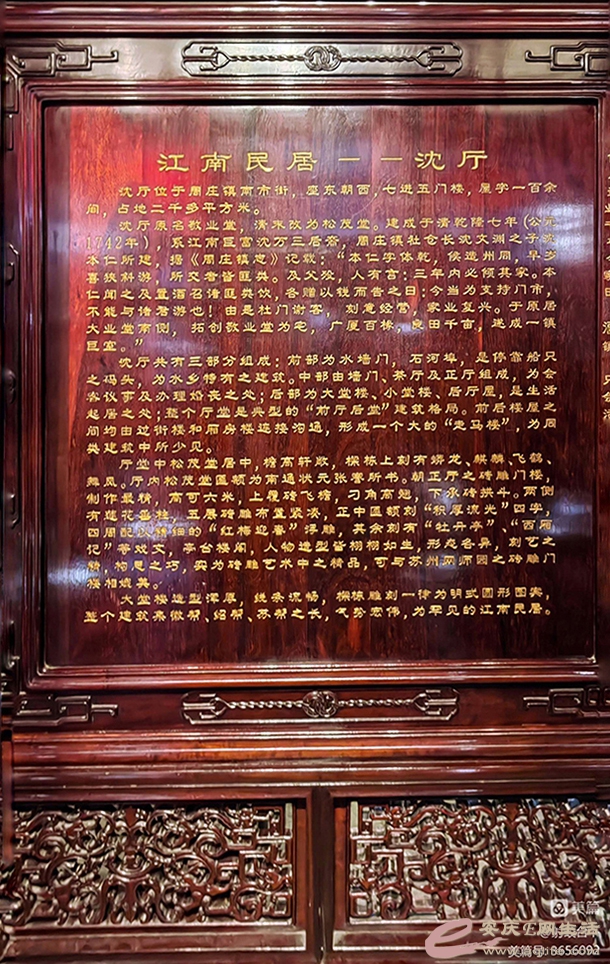 江南民居——沈厅
沈厅位于周庄镇南市街，座东朝西，七进五门楼，屋宇一百余
间，占地二千多平方米。
沈厅原名敬业堂，清末改为松茂堂。建成于清乾隆七年（公元
1742年），系江南巨富沈万三后裔，周庄镇社仓长沈文渊之子沈
本仁所建，据《周庄镇志》记载：“本仁字体乾，侯选州同，早岁
喜狭斜游，所交者皆匪类。及父殁，人有言：三年内必倾其家。本
仁闻之及置酒召诸匪类饮，各赠以钱而告之曰：今当为支持门市，
不能与诸君游也！由是杜门谢客，刻意经营，家业复兴。于原居
大业堂南侧，拓创敬业堂为宅，广厦百椽，良田千亩，遂成一镇
巨室。”
沈厅共有三部分组成：前部为水墙门，石河埠，是停靠船只
之码头，为水乡特有之建筑。中部由墙门、茶厅及正厅组成，为会
客议事及办理婚丧之处；后部为大堂楼、小堂楼、后厅屋，是生活
起居之处；整个厅堂是典型的“前厅后堂”建筑格局。前后楼屋之
间均由过街楼和厢房楼连接沟通，形成一个大的“走马楼”，为同
类建筑中所少见。
厅堂中松茂堂居中，檐高轩敞，梁栋上刻有蟒龙、麒麟、飞鹤、
舞凤。厅内松茂堂匾额为南通状元张謇所书。朝正厅之砖雕门楼，
制作最精，高可六米，上覆砖飞檐，刁角高翘，下承砖拱斗。两侧
有莲花垂柱，五层砖雕布置紧凑，正中匾额刻“积厚流光”四字，
四周配以精细的“红梅迎春”浮雕，其余刻有“牡丹亭”、“西厢
记”等戏文，亭台楼阁，人物造型皆栩栩如生，形态各异，刻艺之
精，构思之巧，实为砖雕艺术中之精品，可与苏州网师园之砖雕门
楼相媲美。
大堂楼造型浑厚，线条流畅，梁栋雕刻一律为明式圆形图案，
整个建筑集徽帮、绍帮、苏帮之长，气势宏伟，为罕见的江南民居。
美篇
安庆E网生活
美篇号:8656092